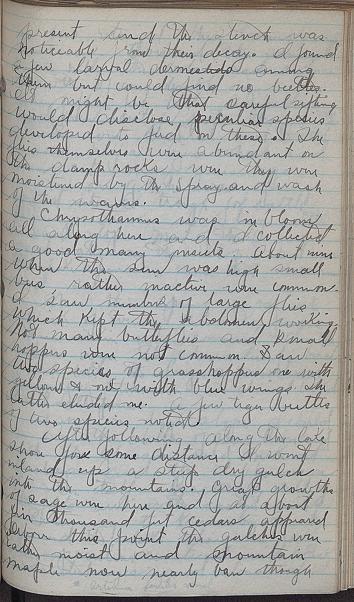 present and the stench was
noticeable from their decay. I found
a few larval dermestids among
them but could find no beetles.
It might be that careful sifting
would disclose peculiar species
developed to feed on these. The
flies themselves were abundant on
the damp rocks were they were
moistened by the spray and wash
of the waves.
Chrysothamnus was in bloom
all along here and I collected
a good many insects. About nine
when the sun was high small
bees rather inactive were common.
I saw numbers of large flies
which kept the abdomen working
Not many butterflies and small
hoppers were not common. Saw
two species of grasshoppers one with
yellow & one with blue wings. The
latter eluded me. A few tiger beetles
of two species noted.
After following along the lake
shore for some distance I went
inland up a steep dry gulch
into the mountains. Great growths
of sage were here and at about
six thousand feet cedars appeared
Above this point the gulches were
rather moist and mountain
maple now nearly bare though